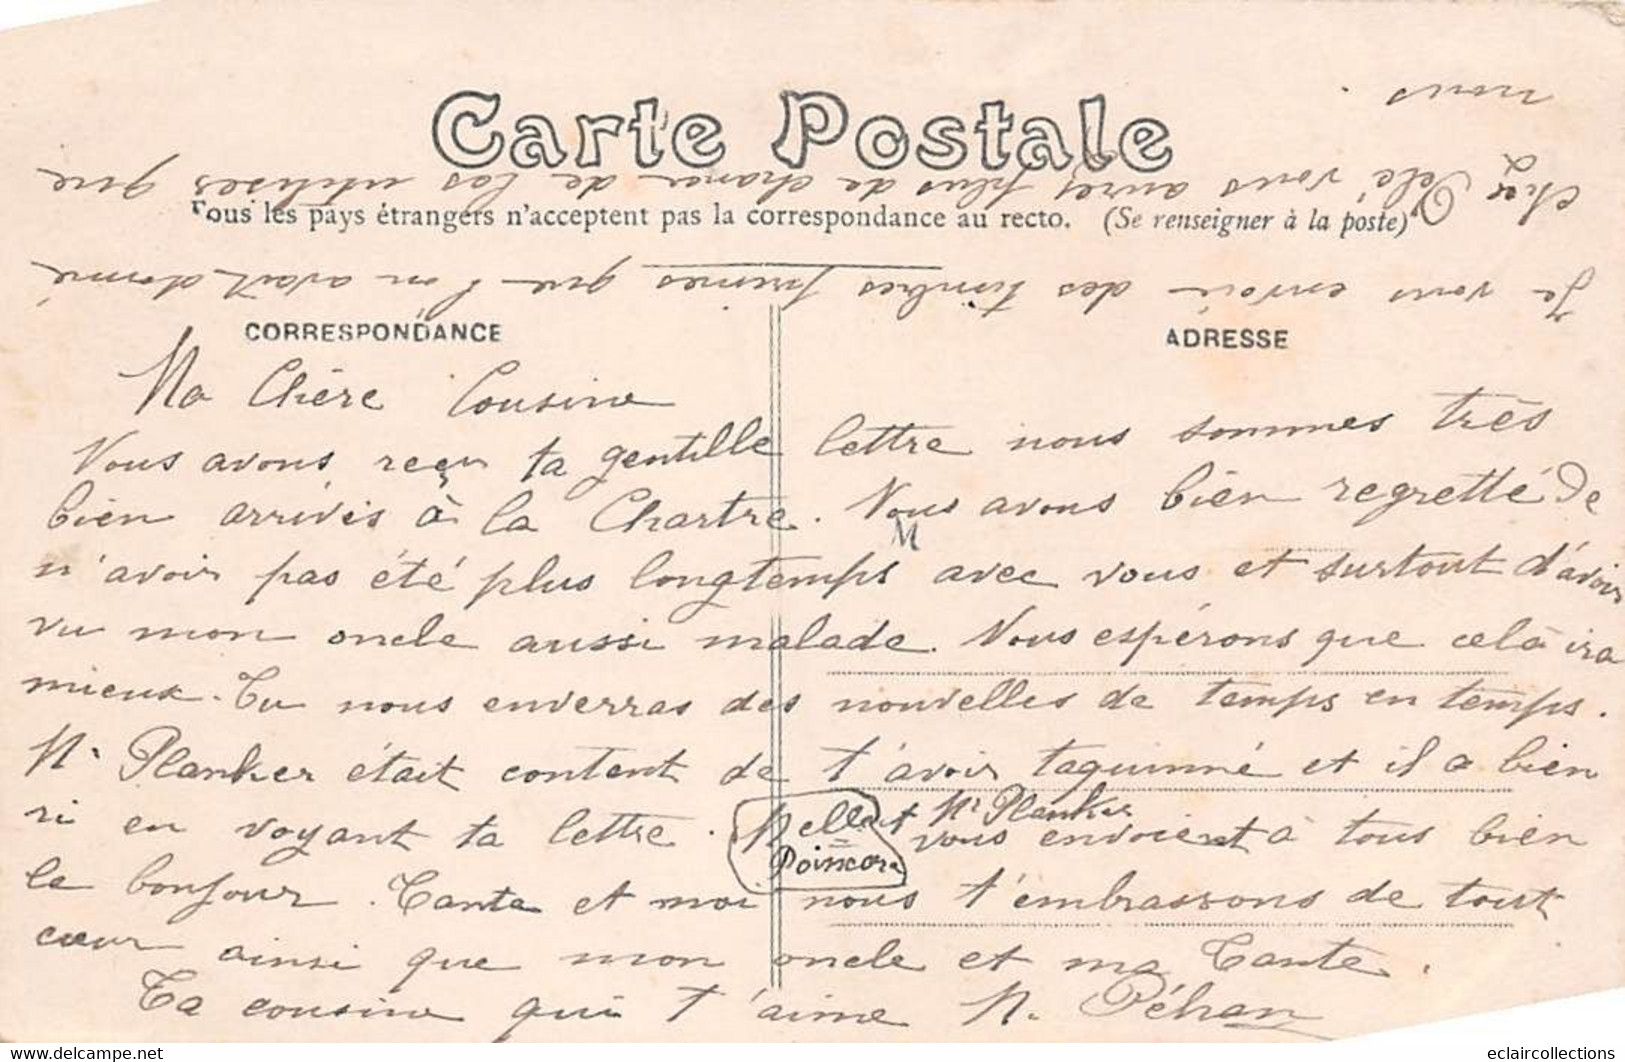 Carte Postale
Tous les pays étrangers n'acceptent pas la correspondance au recto. (Se renseigner à la poste)
CORRESPONDANCE
ADRESSE
Ma Chère Cousine
Nous avons reçu ta gentille lettre nous sommes très
bien arrivés à la Chartre. Nous avons bien regretté de
n'avoir pas été plus longtemps avec vous et surtout d'avoir
vu mon oncle aussi malade. Nous espérons que celà ira
mieux. Tu nous enverras des nouvelles de temps en temps.
Mr Planker était content de t'avoir taquinné et il a bien
ri en voyant ta lettre. Melle Poincar et Mr Planker vous envoient à tous bien
le bonjour. Tante et moi nous t'embrassons de tout
cœur ainsi que mon oncle et ma Tante.
Ta cousine qui t'aime M. Péhan
Je vous envoie des timbres primes que l'on avait donné
chez vous aurez plus de chance de les utiliser que
nous.
eclaircollections